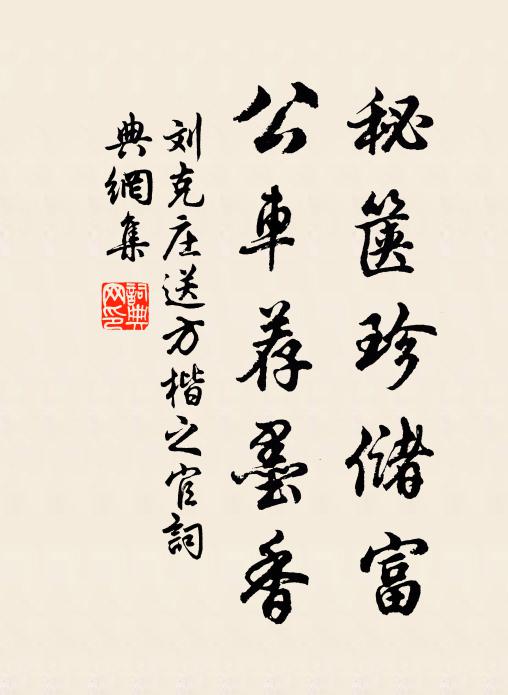 秘箧珍储富
公車荐墨香
刘克庄送方楷之官詞
典網集
詞典
网印